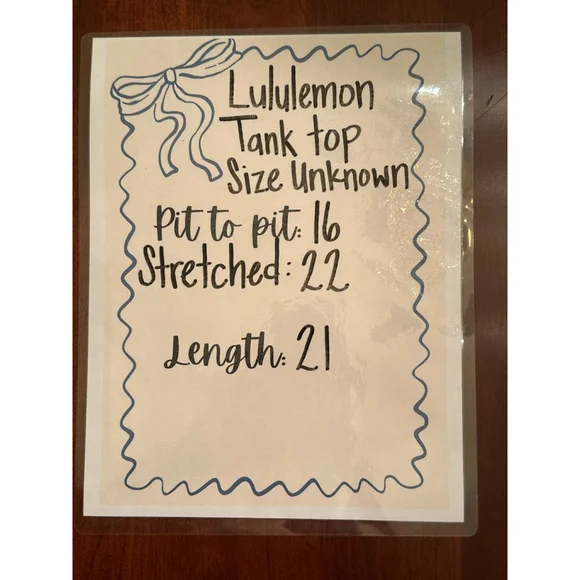 Lululemon
Tank top
Size Unknown
Pit to pit: 16
Stretched: 22
Length: 21